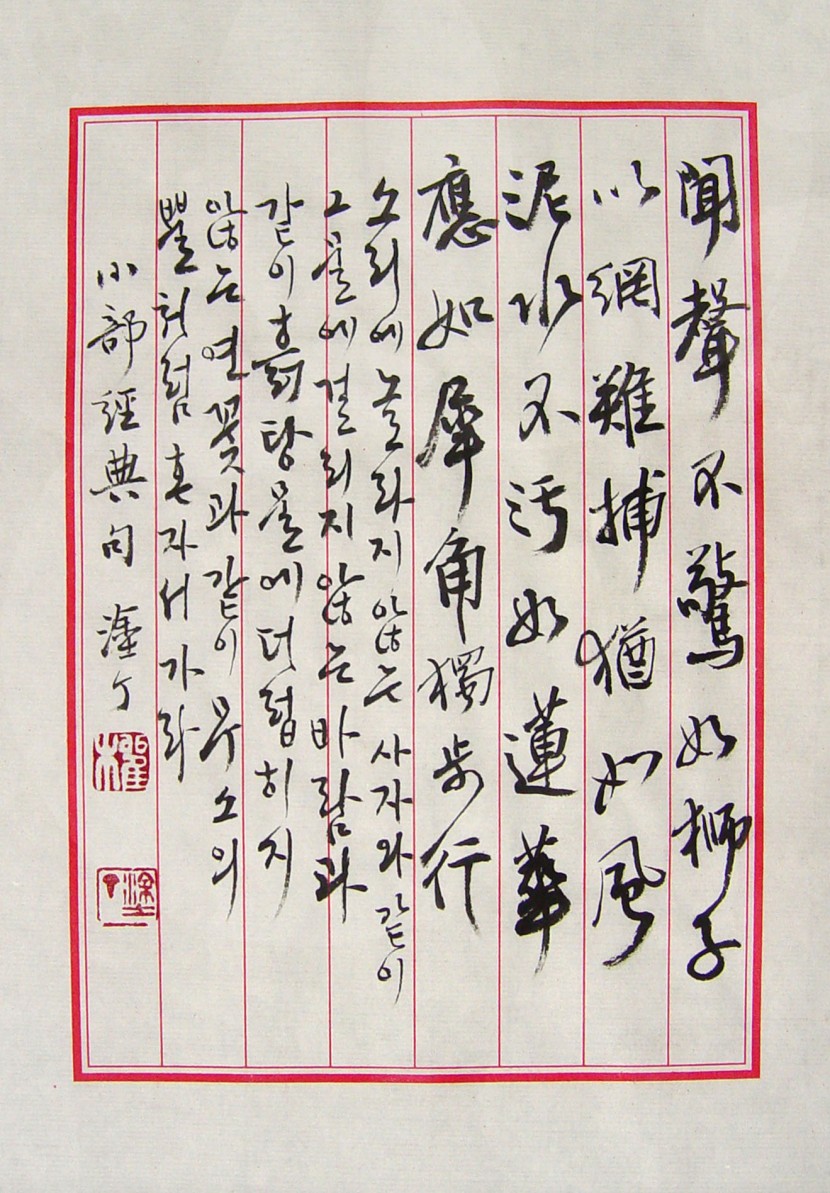 聞聲不驚如獅子
以網難捕猶如風
泥水不汚如蓮華
應如犀角獨步行
소리에 놀라지 않는 사자와 같이
그물에 걸리지 않는 바람과
같이 흙탕물에 더럽히지
않는 연꽃과 같이 무소의
뿔처럼 혼자서 가라
小部經典句